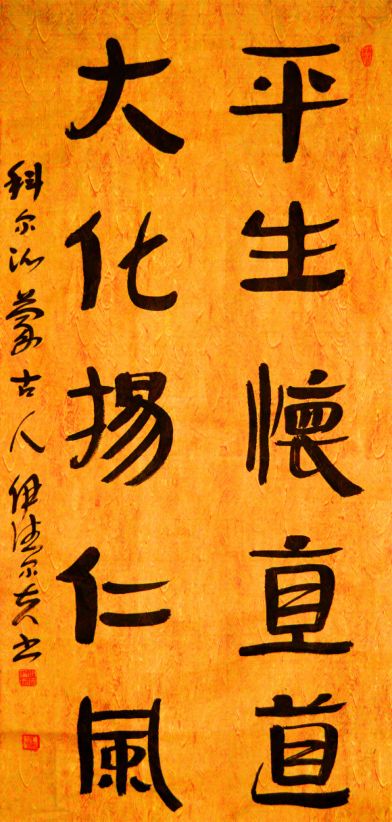 平生懷直道
大化揚仁風
科尔沁蒙古人伊德尔夫书